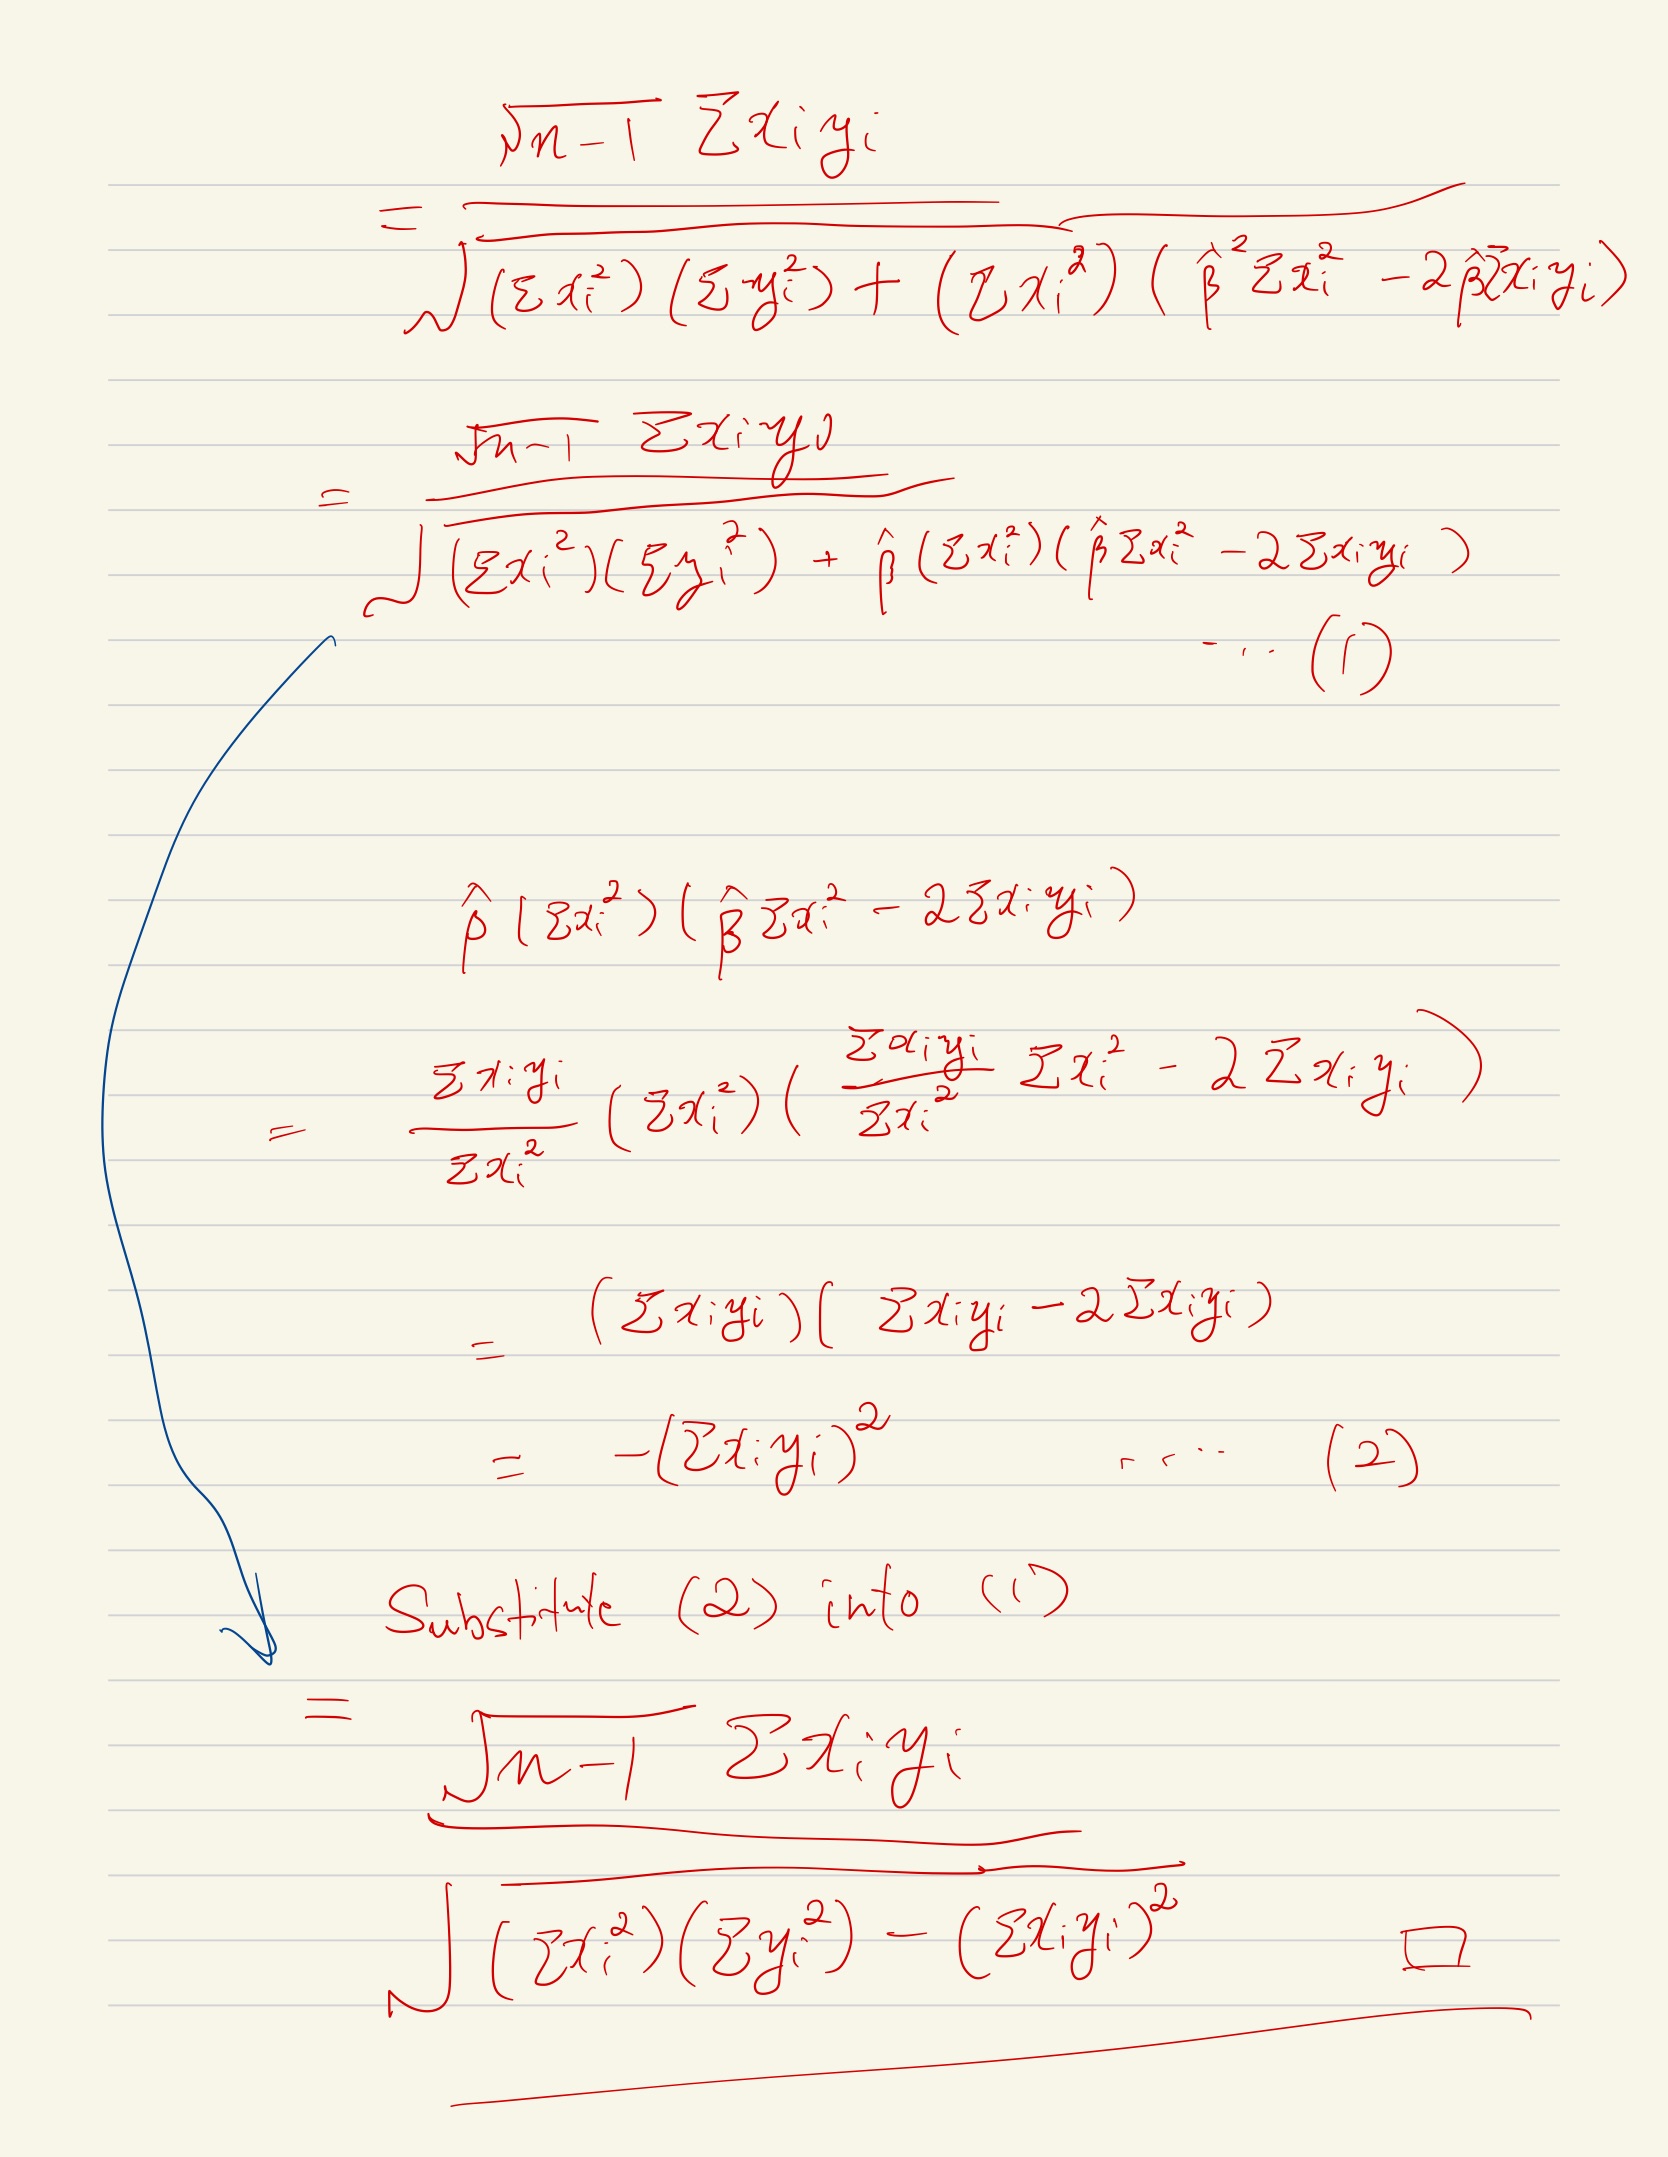 = √(n-1) Σxᵢyᵢ / √((Σxᵢ²)(Σyᵢ²) + (Σxᵢ²)(β̂²Σxᵢ² - 2β̂Σxᵢyᵢ))
= √(n-1) Σxᵢyᵢ / √((Σxᵢ²)(Σyᵢ²) + β̂(Σxᵢ²)(β̂Σxᵢ² - 2Σxᵢyᵢ))
... (1)
β̂(Σxᵢ²)(β̂Σxᵢ² - 2Σxᵢyᵢ)
= Σxᵢyᵢ / Σxᵢ² (Σxᵢ²)(Σxᵢyᵢ / Σxᵢ² Σxᵢ² - 2Σxᵢyᵢ)
= (Σxᵢyᵢ)(Σxᵢyᵢ - 2Σxᵢyᵢ)
= -(Σxᵢyᵢ)² .... (2)
Substitute (2) into (1)
= √(n-1) Σxᵢyᵢ / √((Σxᵢ²)(Σyᵢ²) - (Σxᵢyᵢ)²) □